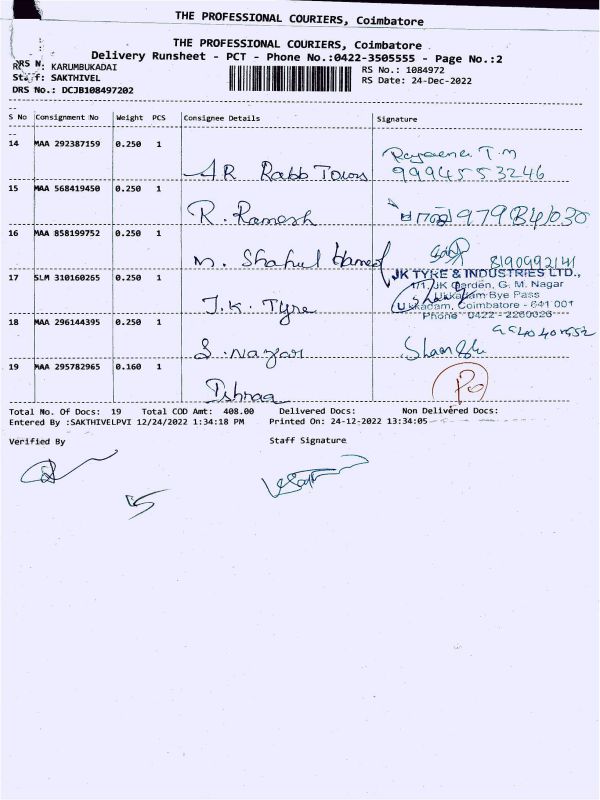 THE PROFESSIONAL COURIERS, Coimbatore
THE PROFESSIONAL COURIERS, Coimbatore
Delivery Runsheet - PCT - Phone No.:0422-3505555 - Page No.:2
RS N: KARUMBUKADAI
RS No.: 1084972
Staff: SAKTHIVEL
RS Date: 24-Dec-2022
DRS No.: DCJB108497202
S No Consignment No Weight PCS Consignee Details Signature
14 MAA 292387159 0.250 1
AR Rabb Tours
T.M
9994553246
15 MAA 568419450 0.250 1
R. Ramesh
16 MAA 858199752 0.250 1
M. Shahul Hameed
8190992141
17 SLM 310160265 0.250 1
J.K. Tyre
JK TYRE & INDUSTRIES LTD.,
1/1, JK Garden, G. M. Nagar
Ukkadam Bye Pass
Ukkadam, Coimbatore - 641 001
Phone : 0422 - 2260026
18 MAA 296144395 0.250 1
S. Nazar
19 MAA 295782965 0.160 1
Ishraa
Total No. Of Docs: 19 Total COD Amt: 408.00 Delivered Docs: Non Delivered Docs:
Entered By :SAKTHIVELPVI 12/24/2022 1:34:18 PM Printed On: 24-12-2022 13:34:05
Verified By Staff Signature